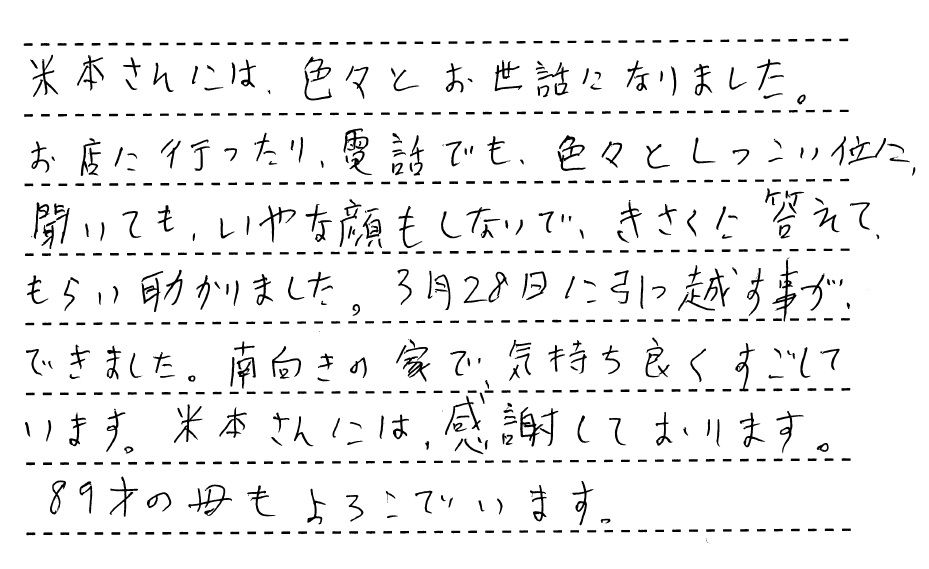 米本さんには、色々とお世話になりました。
お店に行ったり、電話でも、色々としつこい位に、
聞いても、いやな顔もしないで、きさくに答えて、
もらい助かりました。3月28日に引っ越す事が、
できました。南向きの家で、気持ち良くすごして
います。米本さんには、感謝しております。
89才の母もよろこでいます。